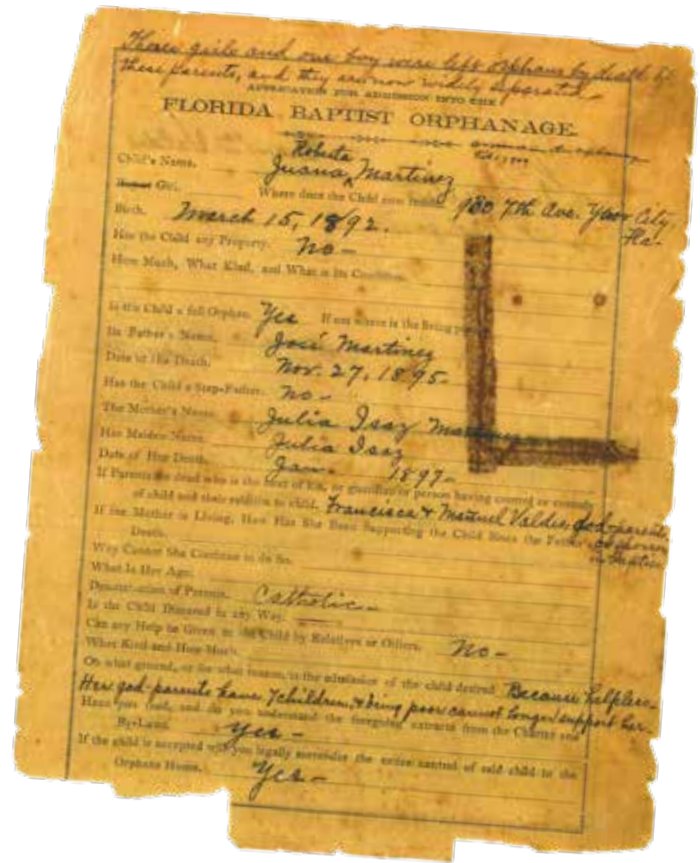 Three girls and one boy were left orphans by death of
these parents, and they are now widely separated
APPLICATION FOR ADMISSION INTO THE
FLORIDA BAPTIST ORPHANAGE.
Roberta
Child's Name. Juana Martinez
Girl. Where does the Child now reside. 1800 7th Ave. Ybor City
Fla-
Birth. March 15, 1892.
Has the Child any Property. No-
How Much, What Kind, and What is its Condition.
Is the Child a full Orphan. Yes If not where is the living
Its Father's Name. José Martinez
Date of his Death. Nov. 27, 1895-
Has the Child a Step-Father. No-
The Mother's Name. Julia Isaz
Her Maiden Name. Julia Isaz
Date of Her Death. Jan. 1897-
If Parents are dead who is the next of kin, or guardian or person having control or custody
of child and their relation to child. Francisca & Manuel Valdes, God-parents,
If the Mother is Living, How Has She Been Supporting the Child Since the Father's
Death.
Why Cannot She Continue to do So.
What Is Her Age.
Denomination of Parents. Catholic-
Is the Child Diseased in any Way.
Can any Help be Given to the Child by Relatives or Others. No-
What Kind and How Much.
On what ground, or for what reason, is the admission of the child desired. Because helpless-
Her god-parents have 7 children, & being poor cannot longer support her-
Have you read, and do you understand the foregoing extracts from the Charter and
By-Laws. Yes-
If the child is accepted will you legally surrender the entire control of said child to the
Orphans Home. Yes-